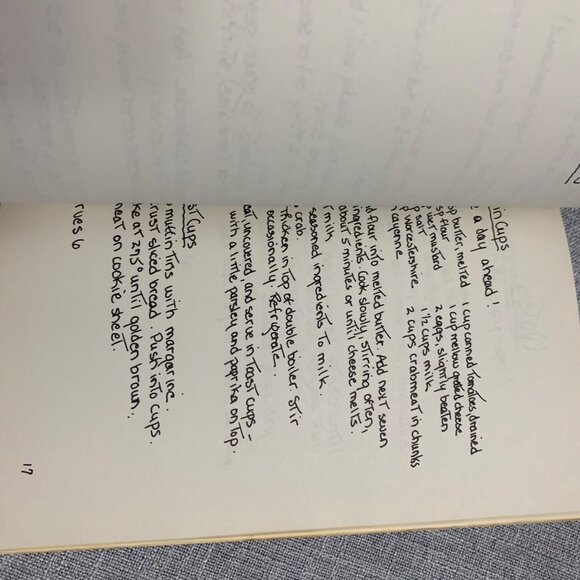 in Cups
a day ahead!
butter, melted 1 cup canned tomatoes, drained
flour 1 cup mellow grated cheese
wet mustard 2 eggs, slightly beaten
salt 1 1/2 cups milk
Worcestershire 2 cups crabmeat in chunks
cayenne
flour into melted butter. Add next seven
ingredients. Cook slowly, stirring often,
about 5 minutes or until cheese melts.
milk
seasoned ingredients to milk.
crab.
thicken in top of double boiler. Stir
occasionally. Refrigerate.
uncovered, and serve in Toast Cups -
with a little parsley and paprika on top.
Cups
muffin tins with margarine.
crust sliced bread. Push into cups.
at 275° until golden brown.
on cookie sheet.
6
17